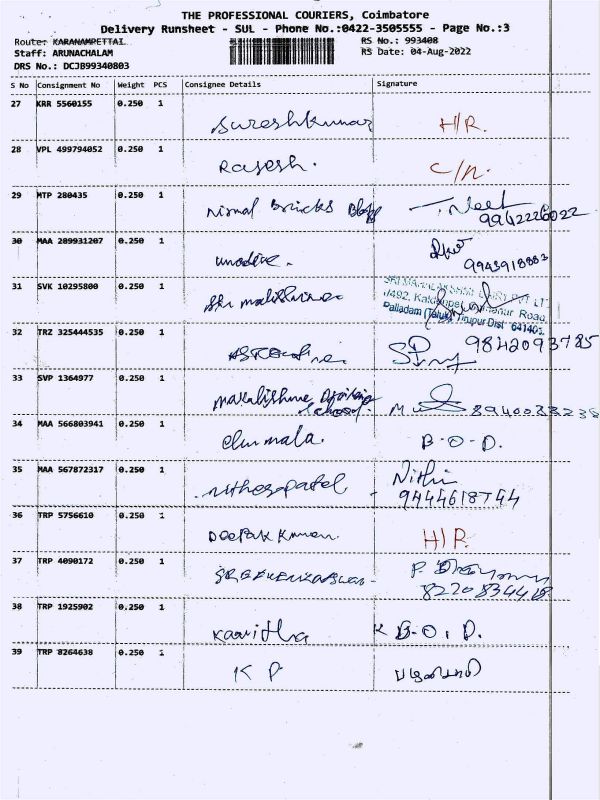 THE PROFESSIONAL COURIERS, Coimbatore
Delivery Runsheet - SUL - Phone No.:0422-3505555 - Page No.:3
Route: KARANAMPETTAI
Staff: ARUNACHALAM
DRS No.: DCJB99340803
RS No.: 993408
RS Date: 04-Aug-2022
S No Consignment No Weight PCS Consignee Details Signature
27 KRR 5560155 0.250 1
Sureshkumar H/R.
28 VPL 499794052 0.250 1
Rajesh. C/n.
29 MTP 280435 0.250 1
Nirmal Bricks
9942226022
30 MAA 209931207 0.250 1
9943918883
31 SVK 10295800 0.250 1
Palladam (Taluk) Tirupur Dist
32 TRZ 325444535 0.250 1
9842093785
33 SVP 1364977 0.250 1
School.
34 MAA 566803941 0.250 1
B-O-D.
35 MAA 567872317 0.250 1
Nithi
9444618744
36 TRP 5756610 0.250 1
Deepak Kumar H/R.
37 TRP 4090172 0.250 1
38 TRP 1925902 0.250 1
Kavitha B-O.D.
39 TRP 8264638 0.250 1
K P